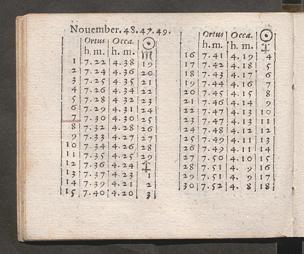 November.48.47.49.
Ortus Occa. ☉
h. m. h. m. ♏
1 7.22 4.38 19
2 7.23 4.37 20
3 7.25 4.35 21
4 7.26 4.34 22
5 7.28 4.32 23
6 7.29 4.31 24
7 7.30 4.30 25
8 7.32 4.28 26
9 7.33 4.27 27
10 7.34 4.26 28
11 7.35 4.25 29
12 7.36 4.24 ♐
13 7.37 4.23 1
14 7.39 4.21 2
15 7.40 4.20 3
Ortus Occa. ☉
h. m. h. m. ♐
16 7.41 4.19 4
17 7.42 4.18 5
18 7.43 4.17 6
19 7.44 4.16 7
20 7.45 4.15 8
21 7.46 4.14 9
22 7.47 4.13 10
23 7.47 4.13 11
24 7.48 4.12 12
25 7.49 4.11 13
26 7.49 4.11 14
27 7.50 4.10 15
28 7.51 4. 9 16
29 7.51 4. 9 17
30 7.52 4. 8 18